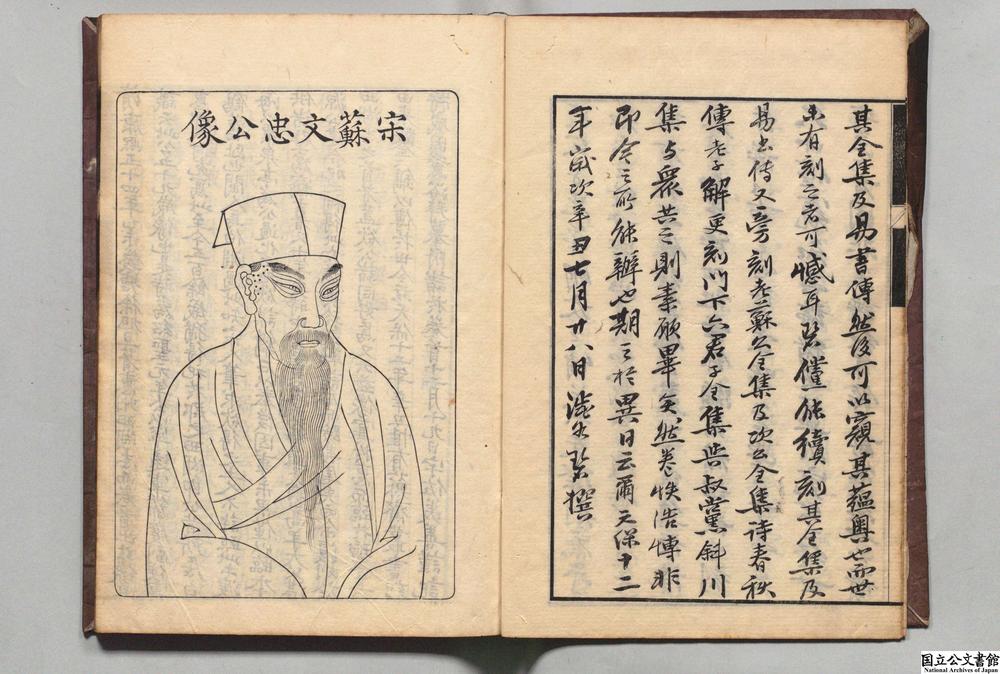 其全集及易書傳然後可以窺其蘊奧也而世
未有刻之者可憾耳碧儻能續刻其全集及
易書傳又旁刻老蘇公全集及次公全集詩春秋
傳老子解更刻門下六君子全集与叔黨斜川
集与眾共之則素願畢矣然卷帙浩博非
即今之所能辦也期之於異日云爾天保十二
年歲次辛丑七月廿八日 撰
宋蘇文忠公像
国立公文書館
National Archives of Japan